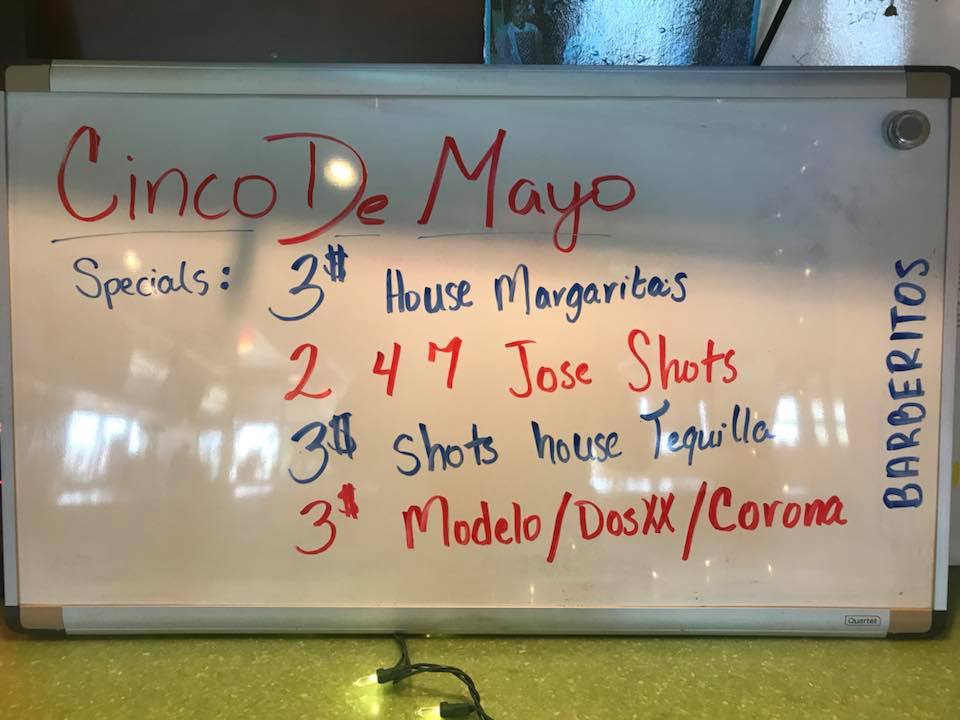 Cinco De Mayo
Specials: 3$ House Margaritas
2 4 7 Jose Shots
3$ Shots house Tequilla
3$ Modelo/DosXX/Corona
BARBERITOS
Quartet